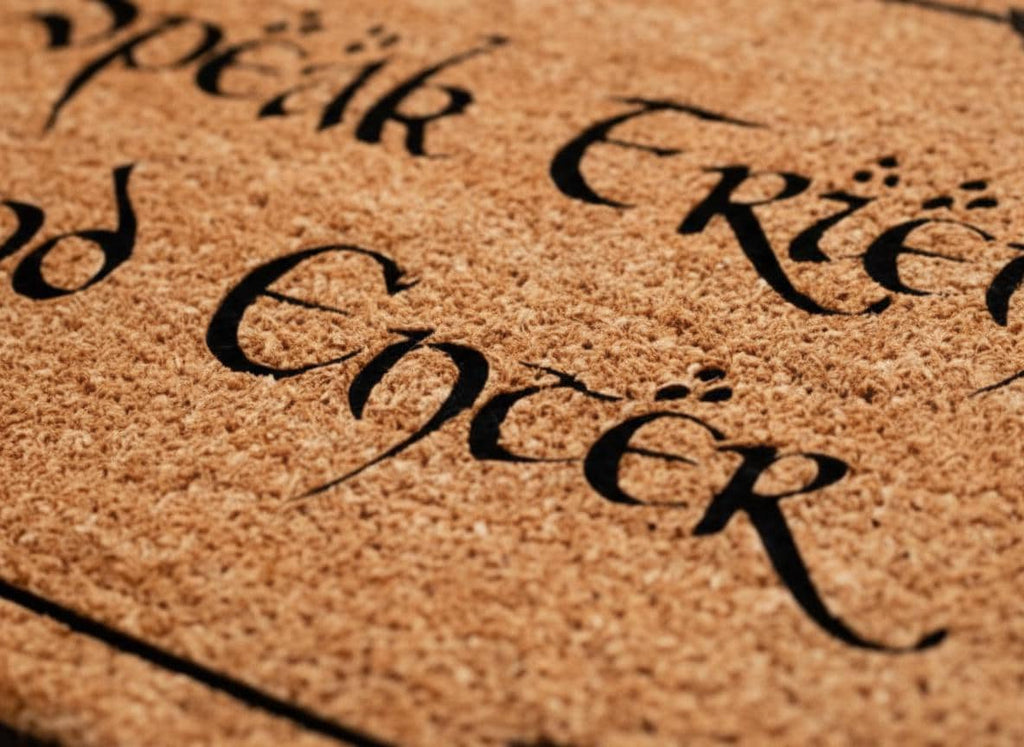 Speak Frie
d Enter